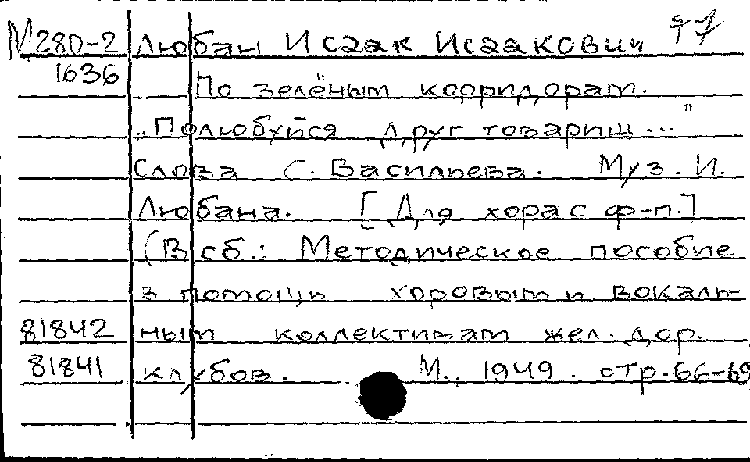 М280-2 Любан Исаак Исаакович
1636 По зелёным корридорам.
„Полюбуйся друг товарищ..."
Слова С. Васильева. Муз. И.
Любана. [Для хора с ф-п.]
(В сб.: Методическое пособие
в помощь хоровым и вокаль-
81842 ным коллективам жел. дор.
81841 клубов. М., 1949. стр. 66-69